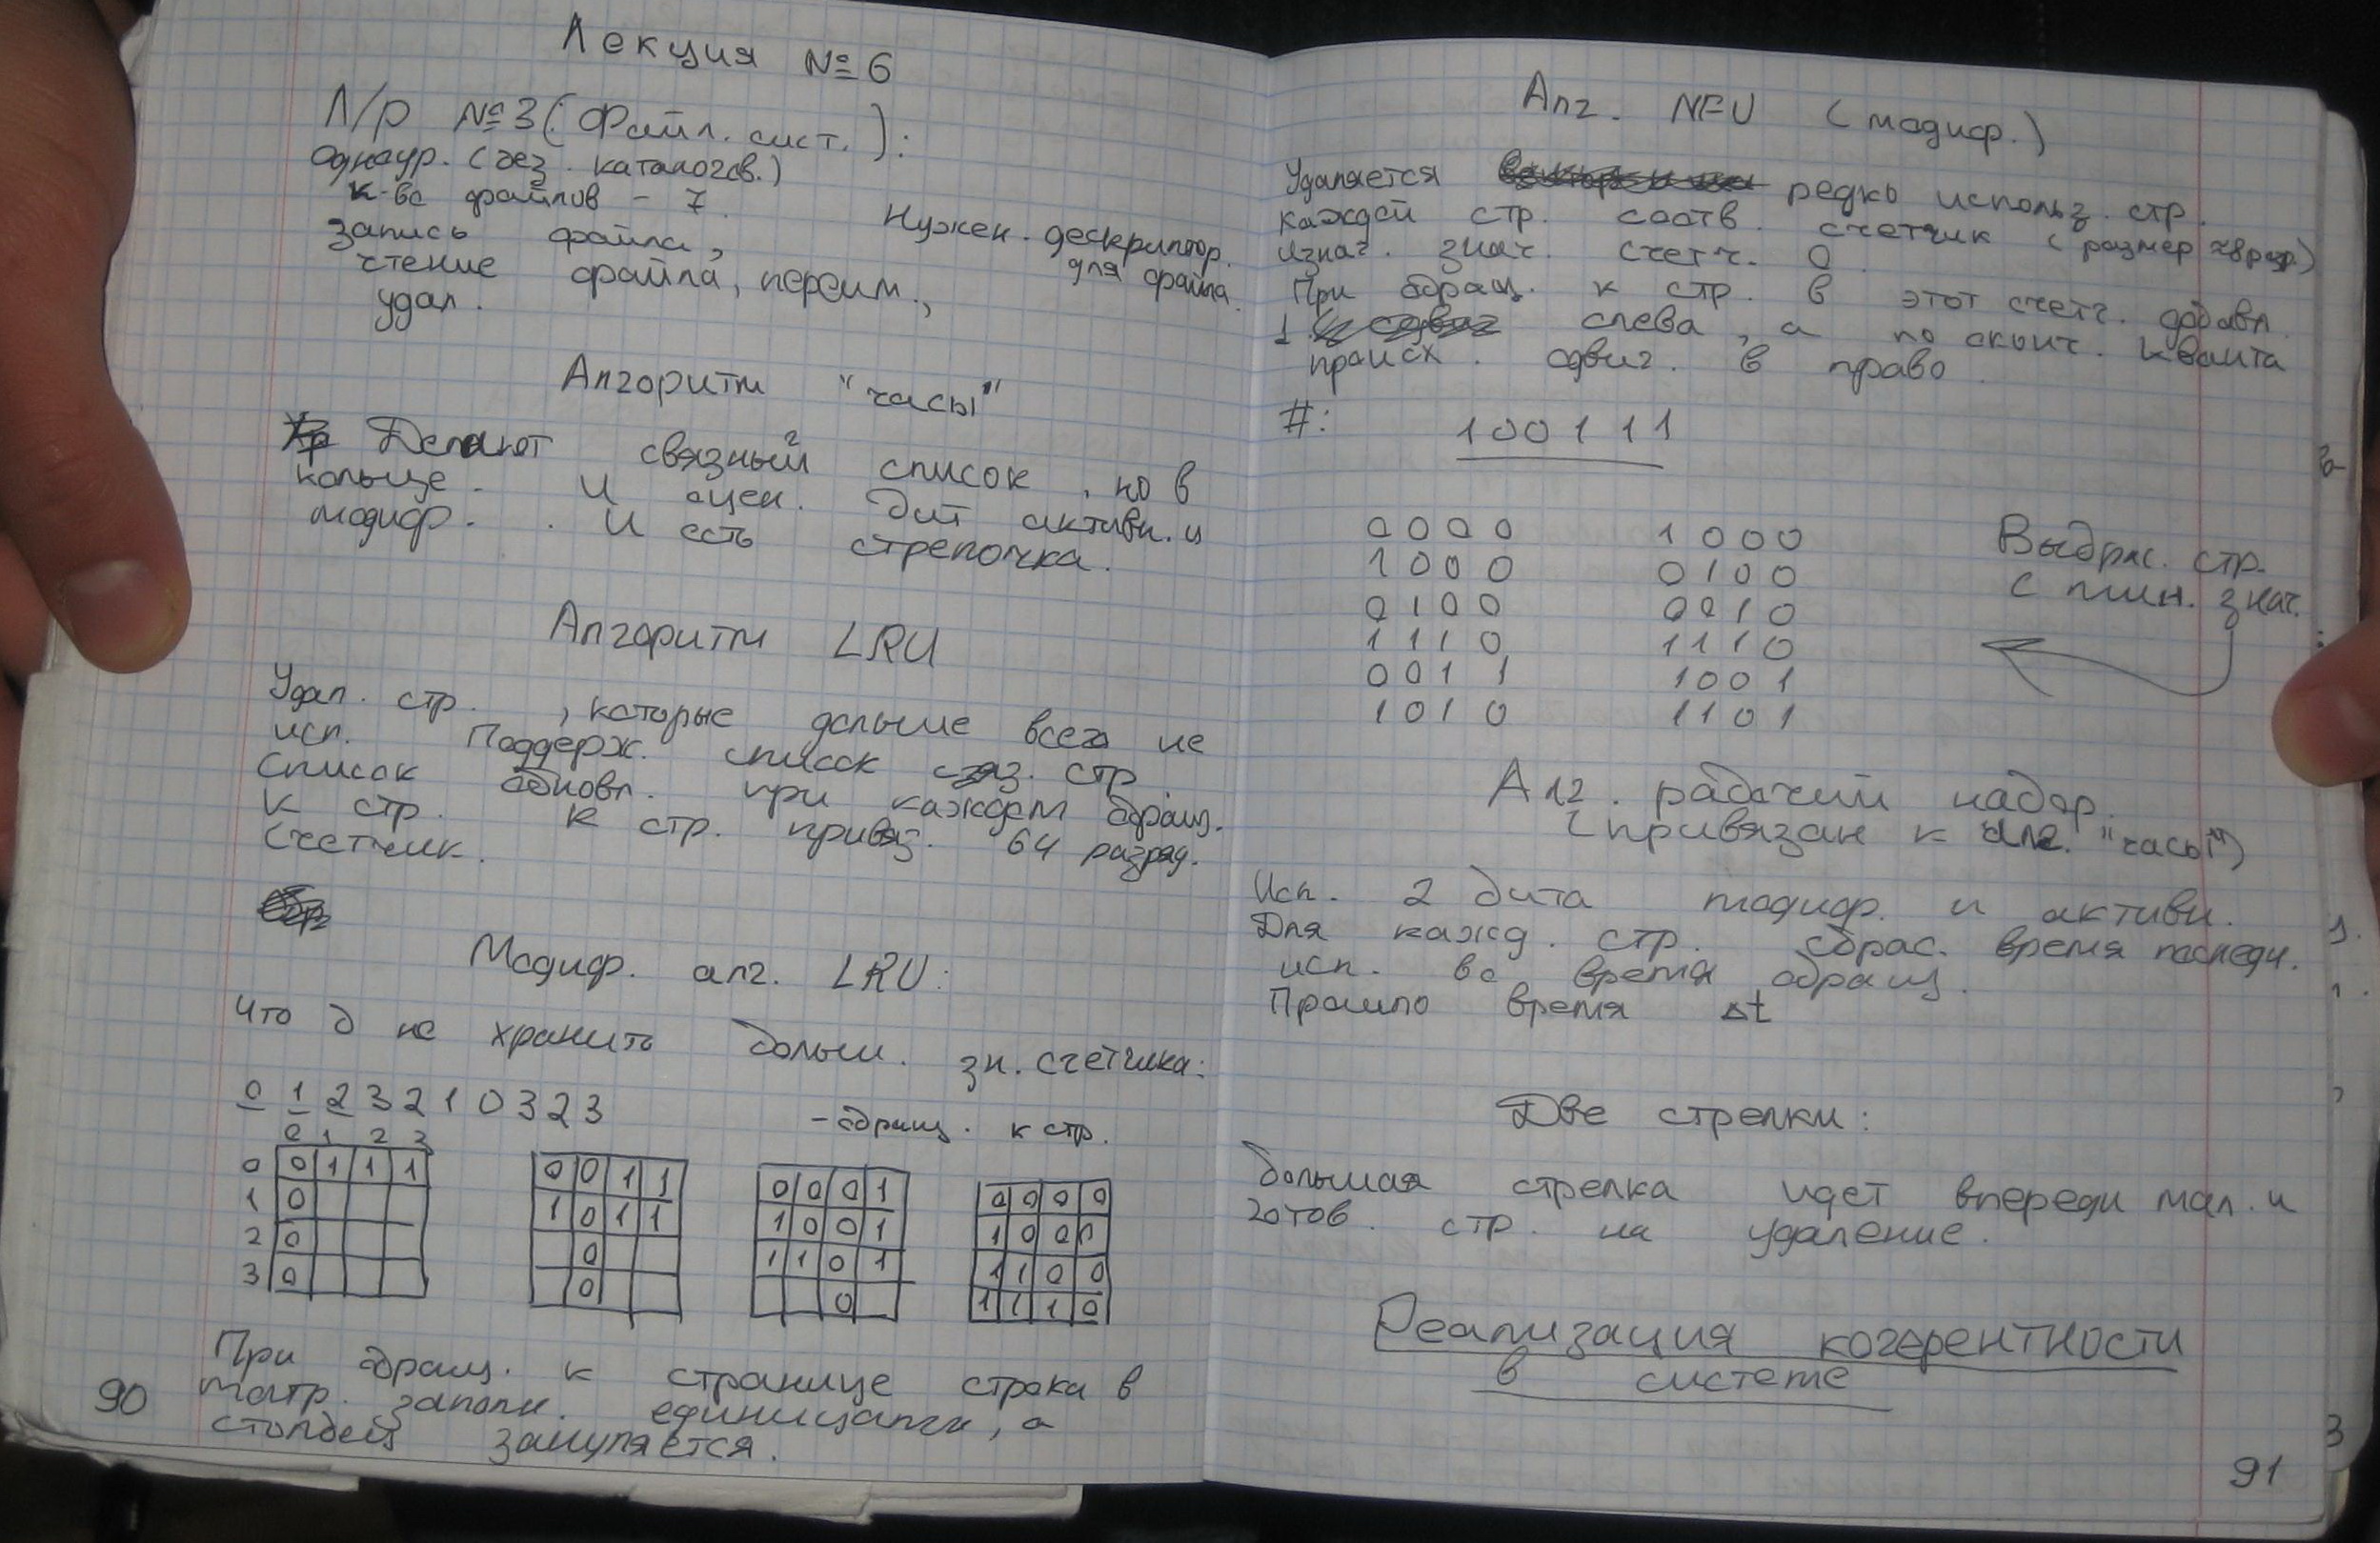 Лекция №6
Л/р №3 (Файл. сист.):
одноур. (без. каталогов.)
к-во файлов - 7.
запись файла,
чтение файла, переим.,
удал.
Нужен. дескриптор.
для файла.
Алгоритм "часы"
Делают связный список, но в
кольце. И оцен. бит активн. и
модиф. . И есть стрелочка.
Алгоритм LRU
Удал. стр. , которые дольше всего не
исп. Поддерж. список связ. стр.
Список обновл. при каждом обращ.
к стр. К стр. привяз. 64 разряд.
счетчик.
Модиф. алг. LRU:
Что б не хранить больш. зн. счетчика:
0 1 2 3 2 1 0 3 2 3 - обращ. к стр.
0 1 2 3
0 0 1 1 1 0 0 1 1 0 0 0 1 0 0 0 0
1 0 1 0 1 1 1 0 0 1 1 0 0 0
2 0 0 1 1 0 1 1 1 0 0
3 0 0 0 1 1 1 0
При обращ. к странице строка в
матр. заполн. единицами, а
столбец зануляется.
90
Алг. NFU (модиф.)
Удаляется редко использ. стр.
каждой стр. соотв. счетчик (размер
изнач. знач. счетч. 0.
При обращ. к стр. в этот счетч. добавл.
1 слева, а по оконч. кванта
происх. сдвиг. в право.
#: 100111
0000 1000
1000 0100
0100 0010
1110 1110
0011 1001
1010 1101
Выбрас. стр.
с мин. знач.
Алг. рабочий набор.
(привязан к алг. "часы")
Исп. 2 бита модиф. и активн.
Для кажд. стр. сбрас. время последн.
исп. во время обращ.
Прошло время Δt
Две стрелки:
большая стрелка идет впереди мал. и
готов. стр. на удаление.
Реализация когерентности
в системе
91